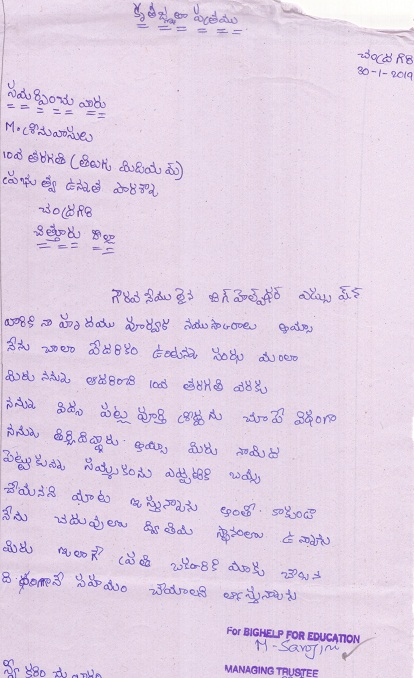 కృతజ్ఞతా పత్రము
చంద్రగిరి
30-1-2019
సమర్పించు వారు
M. శ్రీనువాసులు
10వ తరగతి (తెలుగు మీడియమ్)
ప్రభుత్వ ఉన్నత పాఠశాల
చంద్రగిరి
చిత్తూరు జిల్లా
గౌరవనీయులైన బిగ్ హెల్ప్ ఫర్ ఎడ్యుకేషన్
వారికి నా హృదయ పూర్వక నమస్కారాలు అయ్యా
నేను చాలా పేదరికం ఉండున్న సంధర్భంలో
మీరు నన్ను ఆదరించి 10వ తరగతి వరకు
నన్ను విద్య పట్ల పూర్తి శ్రద్ధను చూపే విధంగా
నన్ను తీర్చిదిద్దారు. అయ్యా మీరు నామీద
పెట్టుకున్న నమ్మకంను ఎప్పటికి ఒమ్ము
చేయనని మాట ఇస్తున్నాను అంతే కాకుండా
నేను చదువులు ద్వితియ స్థానంలు ఉన్నాను
మీరు ఇలాగే ప్రతి ఒక్కరికి మాకు చేసిన
విధంగానే సహయం చేయాలని ఆశిస్తున్నాను
For BIGHELP FOR EDUCATION
M. Sarojini
MANAGING TRUSTEE